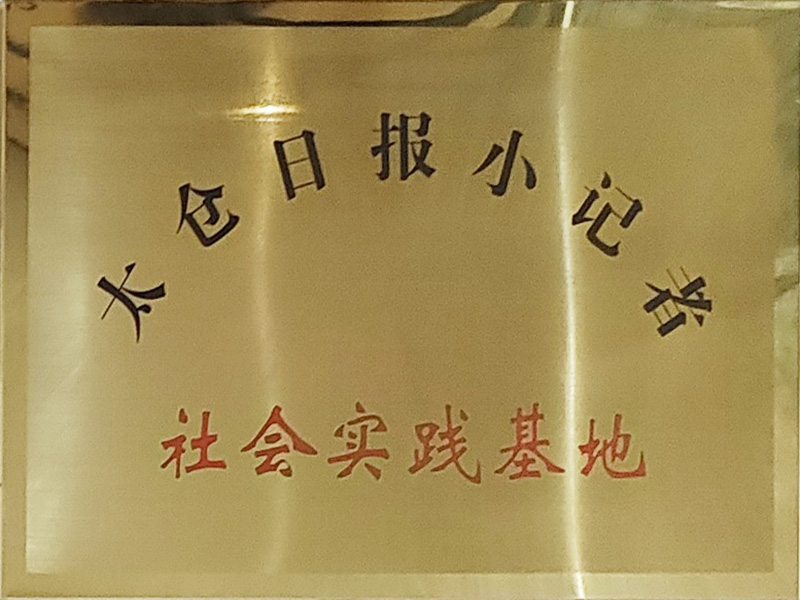 太仓日报小记者
社会实践基地